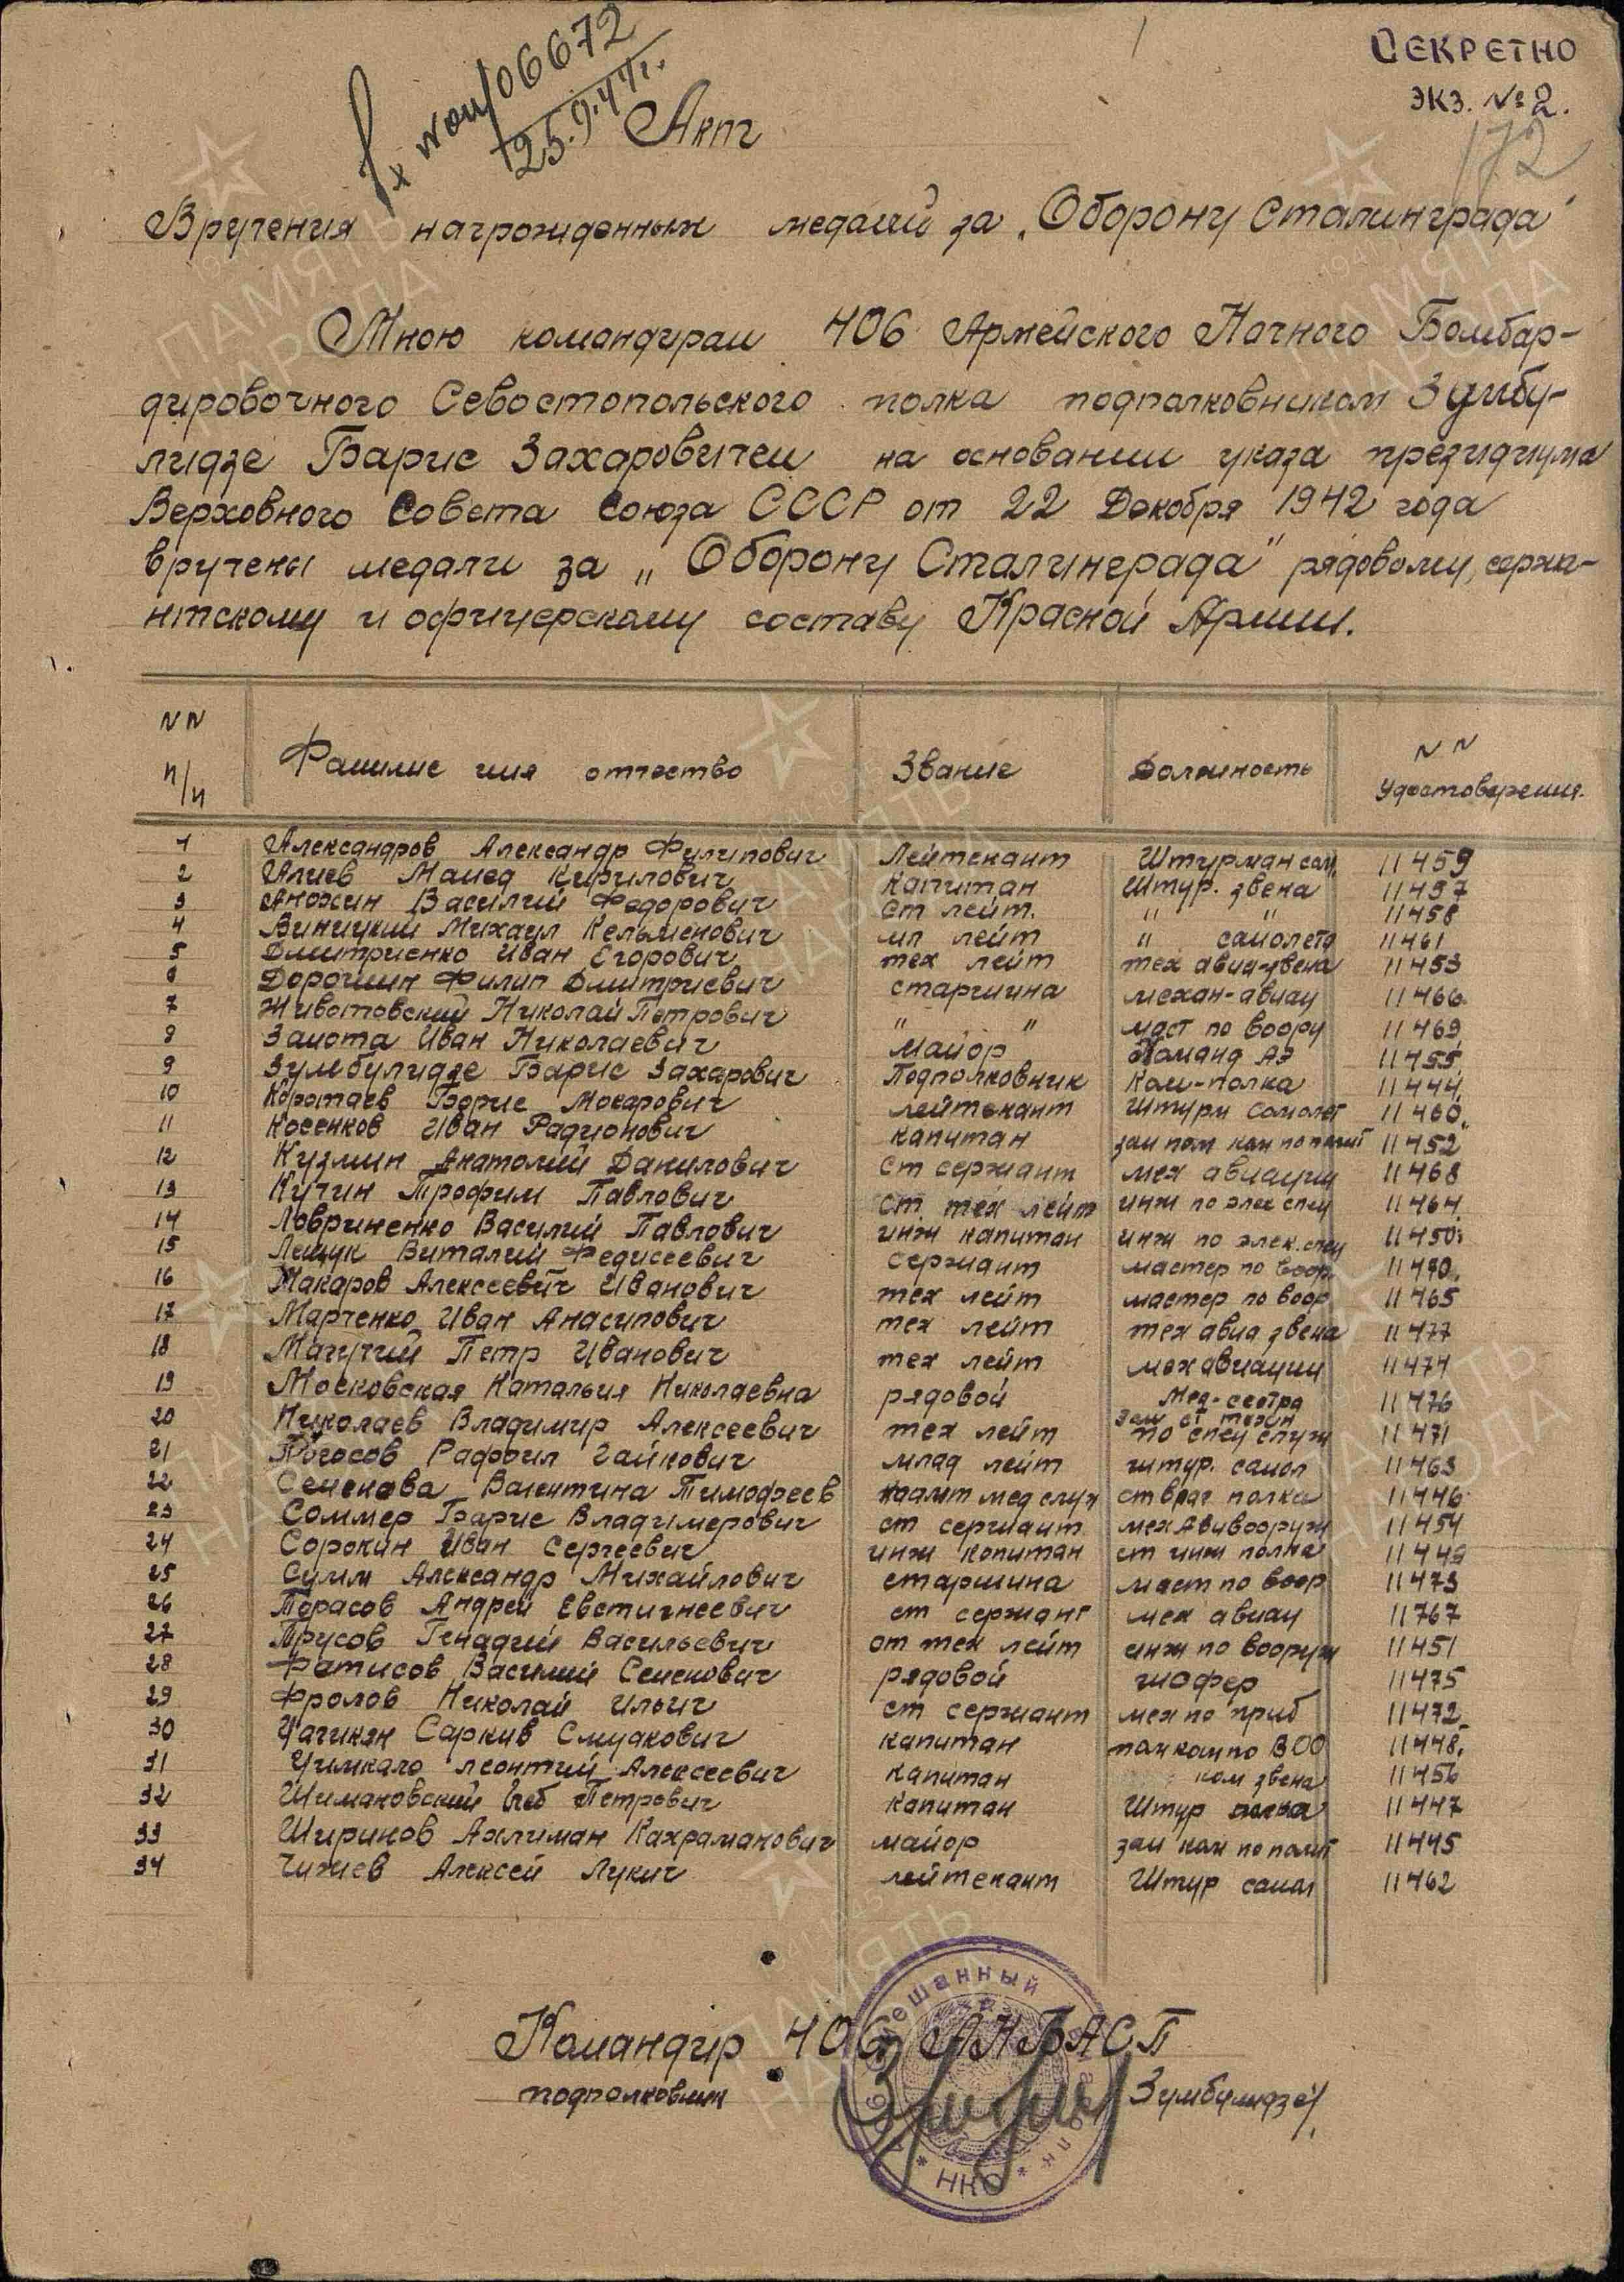 СЕКРЕТНО
экз. №2.
172
вх №он/06672
25.9.44г.
Акт
Вручения награжденных медалей за „Оборону Сталинграда"
Мною командирам 406 Армейского Ночного Бомбар-
дировочного Севостопольского полка подполковником Зумбу-
лидзе Барис Захаровичем на основании указа президиума
Верховного Совета Союза СССР от 22 Декобря 1942 года
вручены медали за „Оборону Сталинграда" рядовому, сержа-
нтскому и офицерскому составу Красной Армии.
NN п/п Фамилие имя отчество Звание Должность NN Удостоверения.
1 Александров Александр Филипович Лейтенант Штурман сам. 11459
2 Алиев Мамед Кирилович Капитан Штур. звена 11457
3 Анохин Василий Федорович Ст лейт. " " 11458
4 Виницкий Михаул Кельменович мл лейт " самолета 11461
5 Дмитриенко Иван Егорович тех лейт тех авиа-звена 11453
6 Дорошин Филип Дмитриевич старшина механ-авиац 11466
7 Животовский Николай Петрович " " маст по воору 11469
8 Замота Иван Николаевич Майор Команд АЭ 11455
9 Зумбулидзе Барис Захарович Подполковник Ком-полка 11444
10 Коротаев Борис Мокарович лейтенант штурм самолет 11460
11 Косенков Иван Радионович капитан зам пом ком по полит 11452
12 Кузмин Анатолий Данилович Ст сержант мех авиации 11468
13 Кучин Трофим Павлович ст тех лейт инж по элек спец 11464
14 Ловриненко Василий Павлович инж капитан инж по элек.спец 11450
15 Лещук Виталий Федисеевич сержант мастер по воор 11480
16 Макаров Алексеевич Иванович тех лейт мастер по воор 11465
17 Марченко Иван Анасипович тех лейт тех авиа звена 11477
18 Магучий Петр Иванович тех лейт мех авиации 11474
19 Московская Наталия Николаевна рядовой Мед-сестра 11476
20 Николаев Владимир Алексеевич тех лейт зам ст техн по спец служ 11471
21 Погосов Рафоил Гайкович млад лейт штур. самол 11463
22 Семенова Валентина Тимофеев капит мед служ ст врач полка 11446
23 Соммер Барис Владимерович ст сержант мех Авивооруж 11454
24 Сорокин Иван Сергеевич инж копитан ст инж полка 11449
25 Сумм Александр Михайлович старшина маст по воор 11473
26 Торасов Андрей Евстигнеевич ст сержант мех авиац 11767
27 Трусов Генадий Васильевич ст тех лейт инж по вооруж 11451
28 Фатисов Василий Семенович рядовой шофер 11475
29 Фролов Николай Ильич ст сержант мех по приб 11472
30 Цагикян Саркив Смуакович капитан пом ком по ВОО 11448
31 Чимкало леонтий Алексеевич капитан ком звена 11456
32 Шимановский Глеб Петрович капитан Штур полка 11447
33 Ширинов Ахлиман Кахраманович майор зам ком по полит 11445
34 Чижев Алексей Лукич лейтенант Штур самол 11462
Командир 406 АНБАС.П
подполковник Зумбулидзе/
смешанный
НКО
ПАМЯТЬ НАРОДА